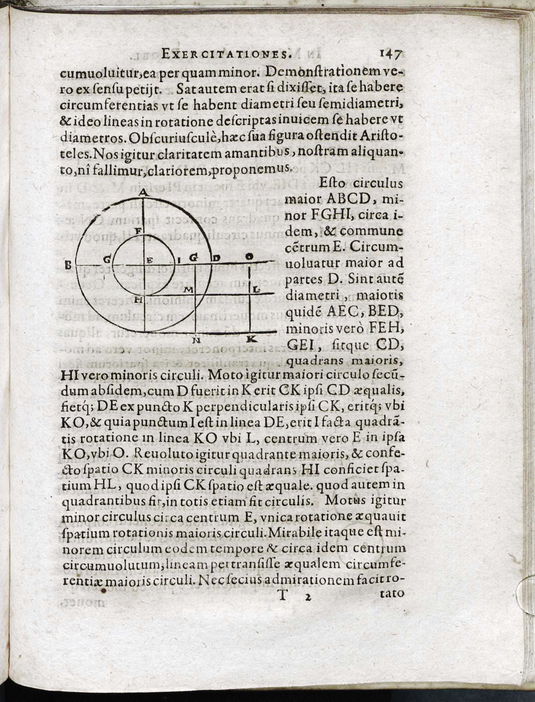 EXERCITATIONES. 147
cumuoluitur, ea per quam minor. Demonstrationem ve-
ro ex sensu petijt. Sat autem erat si dixisset, ita se habere
circumferentias vt se habent diametri seu semidiametri,
& ideo lineas in rotatione descriptas inuicem se habere vt
diametros. Obscuriusculè, hæc sua figura ostendit Aristo-
teles. Nos igitur claritatem amantibus, nostram aliquan-
to, ni fallimur, clariorem, proponemus.
A
F
B G E I G D O
M L
H
N K
Esto circulus
maior ABCD, mi-
nor FGHI, circa i-
dem, & commune
cẽtrum E. Circum-
uoluatur maior ad
partes D. Sint autẽ
diametri, maioris
quidẽ AEC, BED,
minoris verò FEH,
GEI, sitque CD,
quadrans maioris,
HI vero minoris circuli. Moto igitur maiori circulo secũ-
dum absidem, cum D fuerit in K erit CK ipsi CD æqualis,
fietq; DE ex puncto K perpendicularis ipsi CK, eritq; vbi
KO, & quia punctum I est in linea DE, erit I facta quadrã-
tis rotatione in linea KO vbi L, centrum vero E in ipsa
KO, vbi O. Reuoluto igitur quadrante maioris, & confe-
cto spatio CK minoris circuli quadrans HI conficiet spa-
tium HL, quod ipsi CK spatio est æquale. quod autem in
quadrantibus fit, in totis etiam fit circulis. Motus igitur
minor circulus circa centrum E, vnica rotatione æquauit
spatium rotationis maioris circuli. Mirabile itaque est mi-
norem circulum eodem tempore & circa idem centrum
circumuolutum, lineam pertransisse æqualem circumfe-
rentiæ maioris circuli. Nec secius admirationem facit ro-
T 2 tato